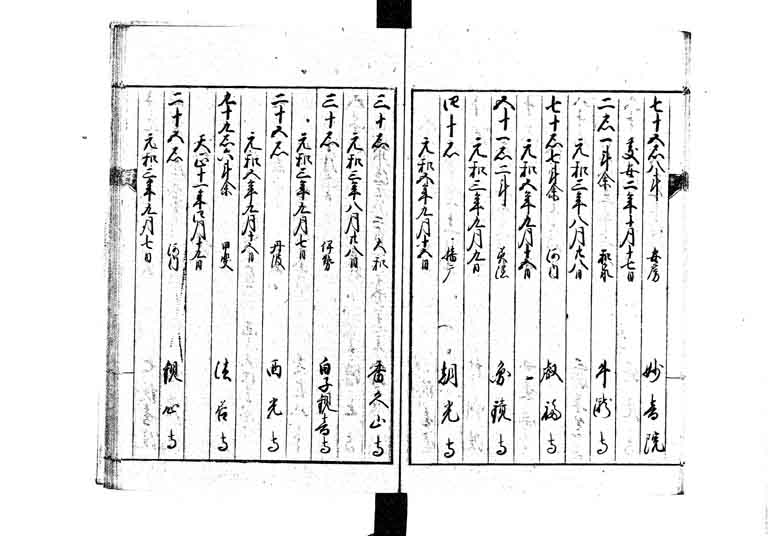 七十五石八斗 安房 妙音院
慶安二年十月十七日
二石一斗余 和泉 牛滝寺
元和三年八月廿八日
七十石七斗余 河内 叡福寺
元和五年九月十五日
五十一石二斗 美濃
元和三年九月九日
四十石 播磨 朝光寺
元和五年九月十五日
三十石 大和 寺
元和三年八月廿八日
三十石 伊勢 白子観音寺
元和三年九月七日
二十五石 丹波 西光寺
元和五年九月十五日
九十九石六斗余 甲斐 法善寺
天正十一年四月十九日
二十五石 河内 観心寺
元和三年九月七日